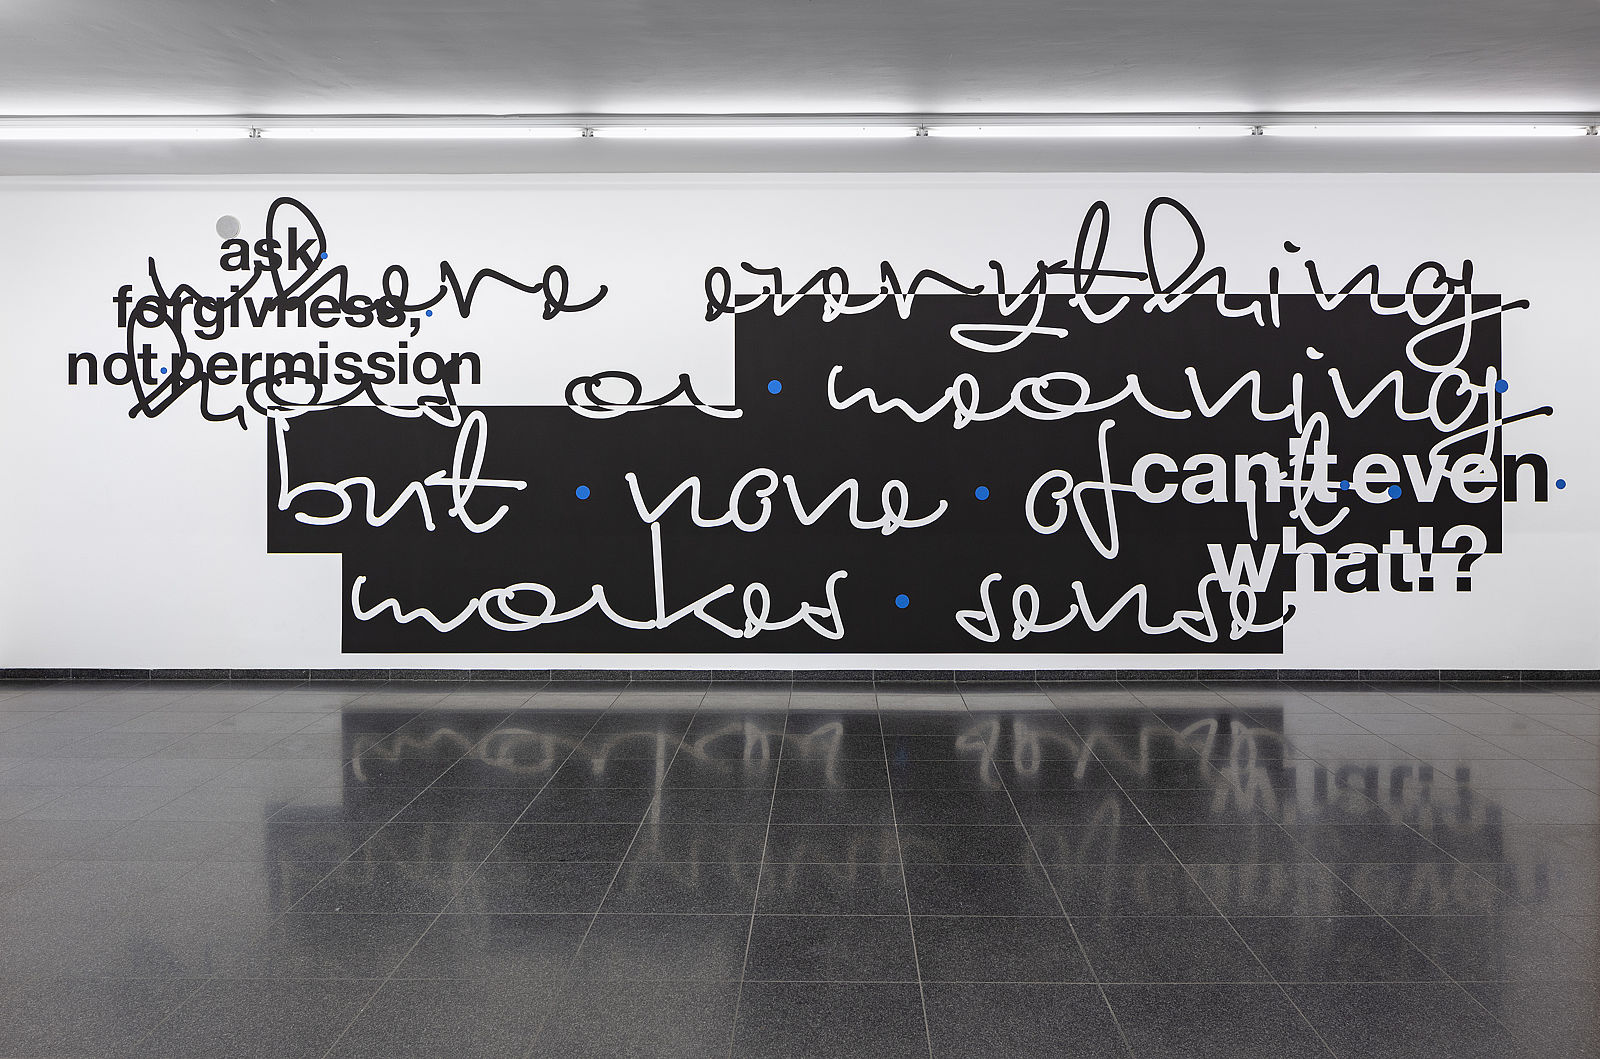 ask
forgivness,
not permission
where everything
has a meaning
but none of it
makes sense
can't even
what!?